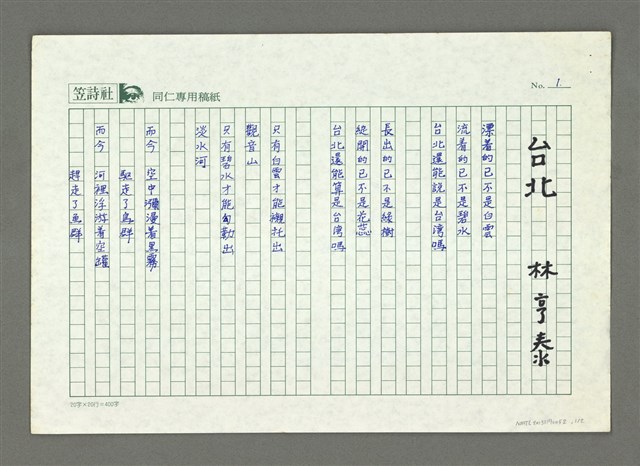 笠詩社 同仁專用稿紙
No. 1.
台北 林亨泰
漂着的已不是白雲
流着的已不是碧水
台北還能說是台灣嗎
長出的已不是綠樹
綻開的已不是花蕊
台北還能算是台灣嗎
只有白雲才能襯托出
觀音山
只有碧水才能勾勒出
淡水河
而今 空中瀰漫著黑霧
驅走了鳥群
而今 河裡浮游着空罐
趕走了魚群
20字×20行=400字